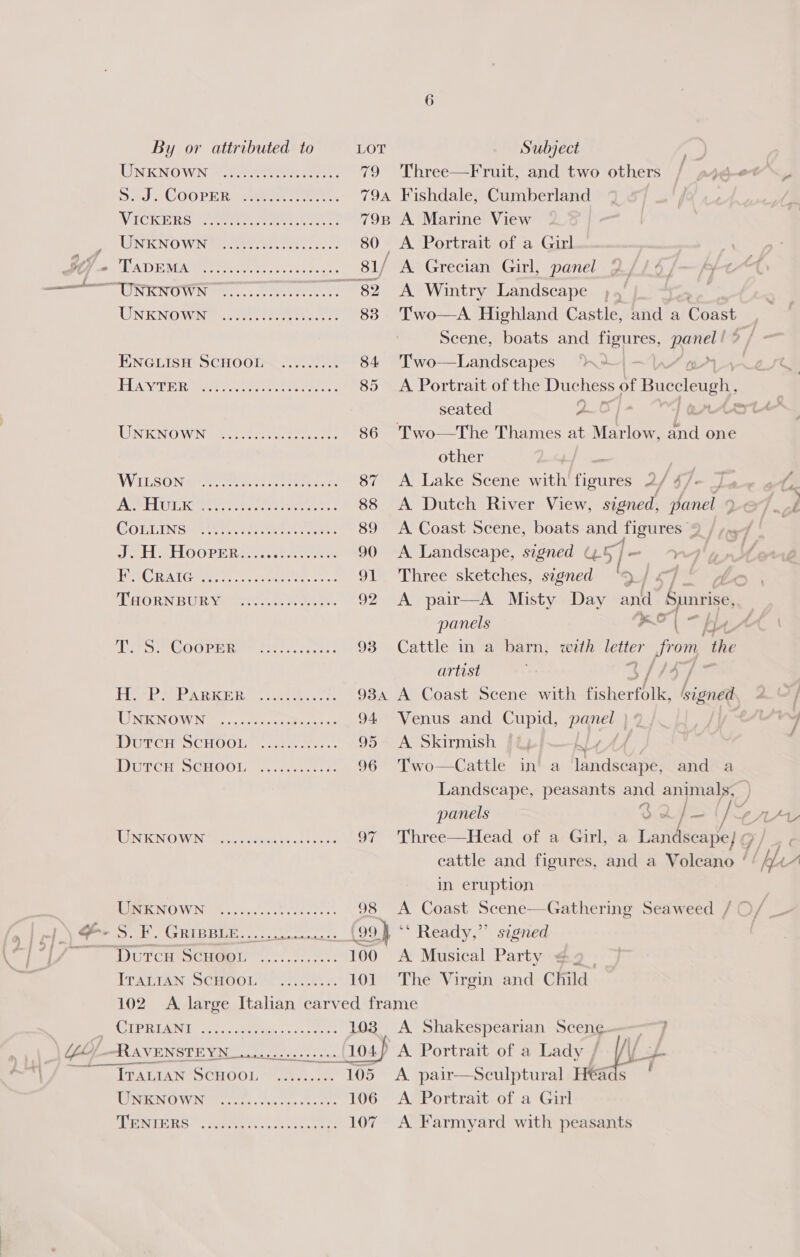 6
By or attributed to LOT Subject
UNKNOWN .................. 79 Three—Fruit, and two others
S. J. COOPER ............... 79A Fishdale, Cumberland
VICKERS ..................... 79B A Marine View
UNKNOWN .................. 80 A Portrait of a Girl
TADEMA ..................... 81 A Grecian Girl, panel
UNKNOWN .................. 82 A Wintry Landscape
UNKNOWN .................. 83 Two—A Highland Castle, and a Coast
Scene, boats and figures, panel
ENGLISH SCHOOL ......... 84 Two—Landscapes
HAYTER ..................... 85 A Portrait of the Duchess of Buccleugh,
seated
UNKNOWN .................. 86 Two—The Thames at Marlow, and one
other
WILSON ..................... 87 A Lake Scene with figures
A. HULK ..................... 88 A Dutch River View, signed, panel
COLLINS ..................... 89 A Coast Scene, boats and figures
J. H. HOOPER............... 90 A Landscape, signed
F. CRAIG ..................... 91 Three sketches, signed
THORNBURY ............... 92 A pair—A Misty Day and Sunrise,
panels
T. S. COOPER ............... 93 Cattle in a barn, with letter from the
artist
H. P. PARKER ............... 93A A Coast Scene with fisherfolk, signed
UNKNOWN .................. 94 Venus and Cupid, panel
DUTCH SCHOOL ............ 95 A Skirmish
DUTCH SCHOOL ............ 96 Two—Cattle in a landscape, and a
Landscape, peasants and animals,
panels
UNKNOWN .................. 97 Three—Head of a Girl, a Landscape,
cattle and figures, and a Volcano
in eruption
UNKNOWN .................. 98 A Coast Scene—Gathering Seaweed
S. F. GRIBBLE............... 99 “Ready,” signed
DUTCH SCHOOL ............ 100 A Musical Party
ITALIAN SCHOOL ......... 101 The Virgin and Child
102 A large Italian carved frame
CIPRIANI ..................... 103 A Shakespearian Scene
RAVENSTEYN............... 104 A Portrait of a Lady
ITALIAN SCHOOL ......... 105 A pair—Sculptural Heads
UNKNOWN .................. 106 A Portrait of a Girl
TENIERS ..................... 107 A Farmyard with peasants